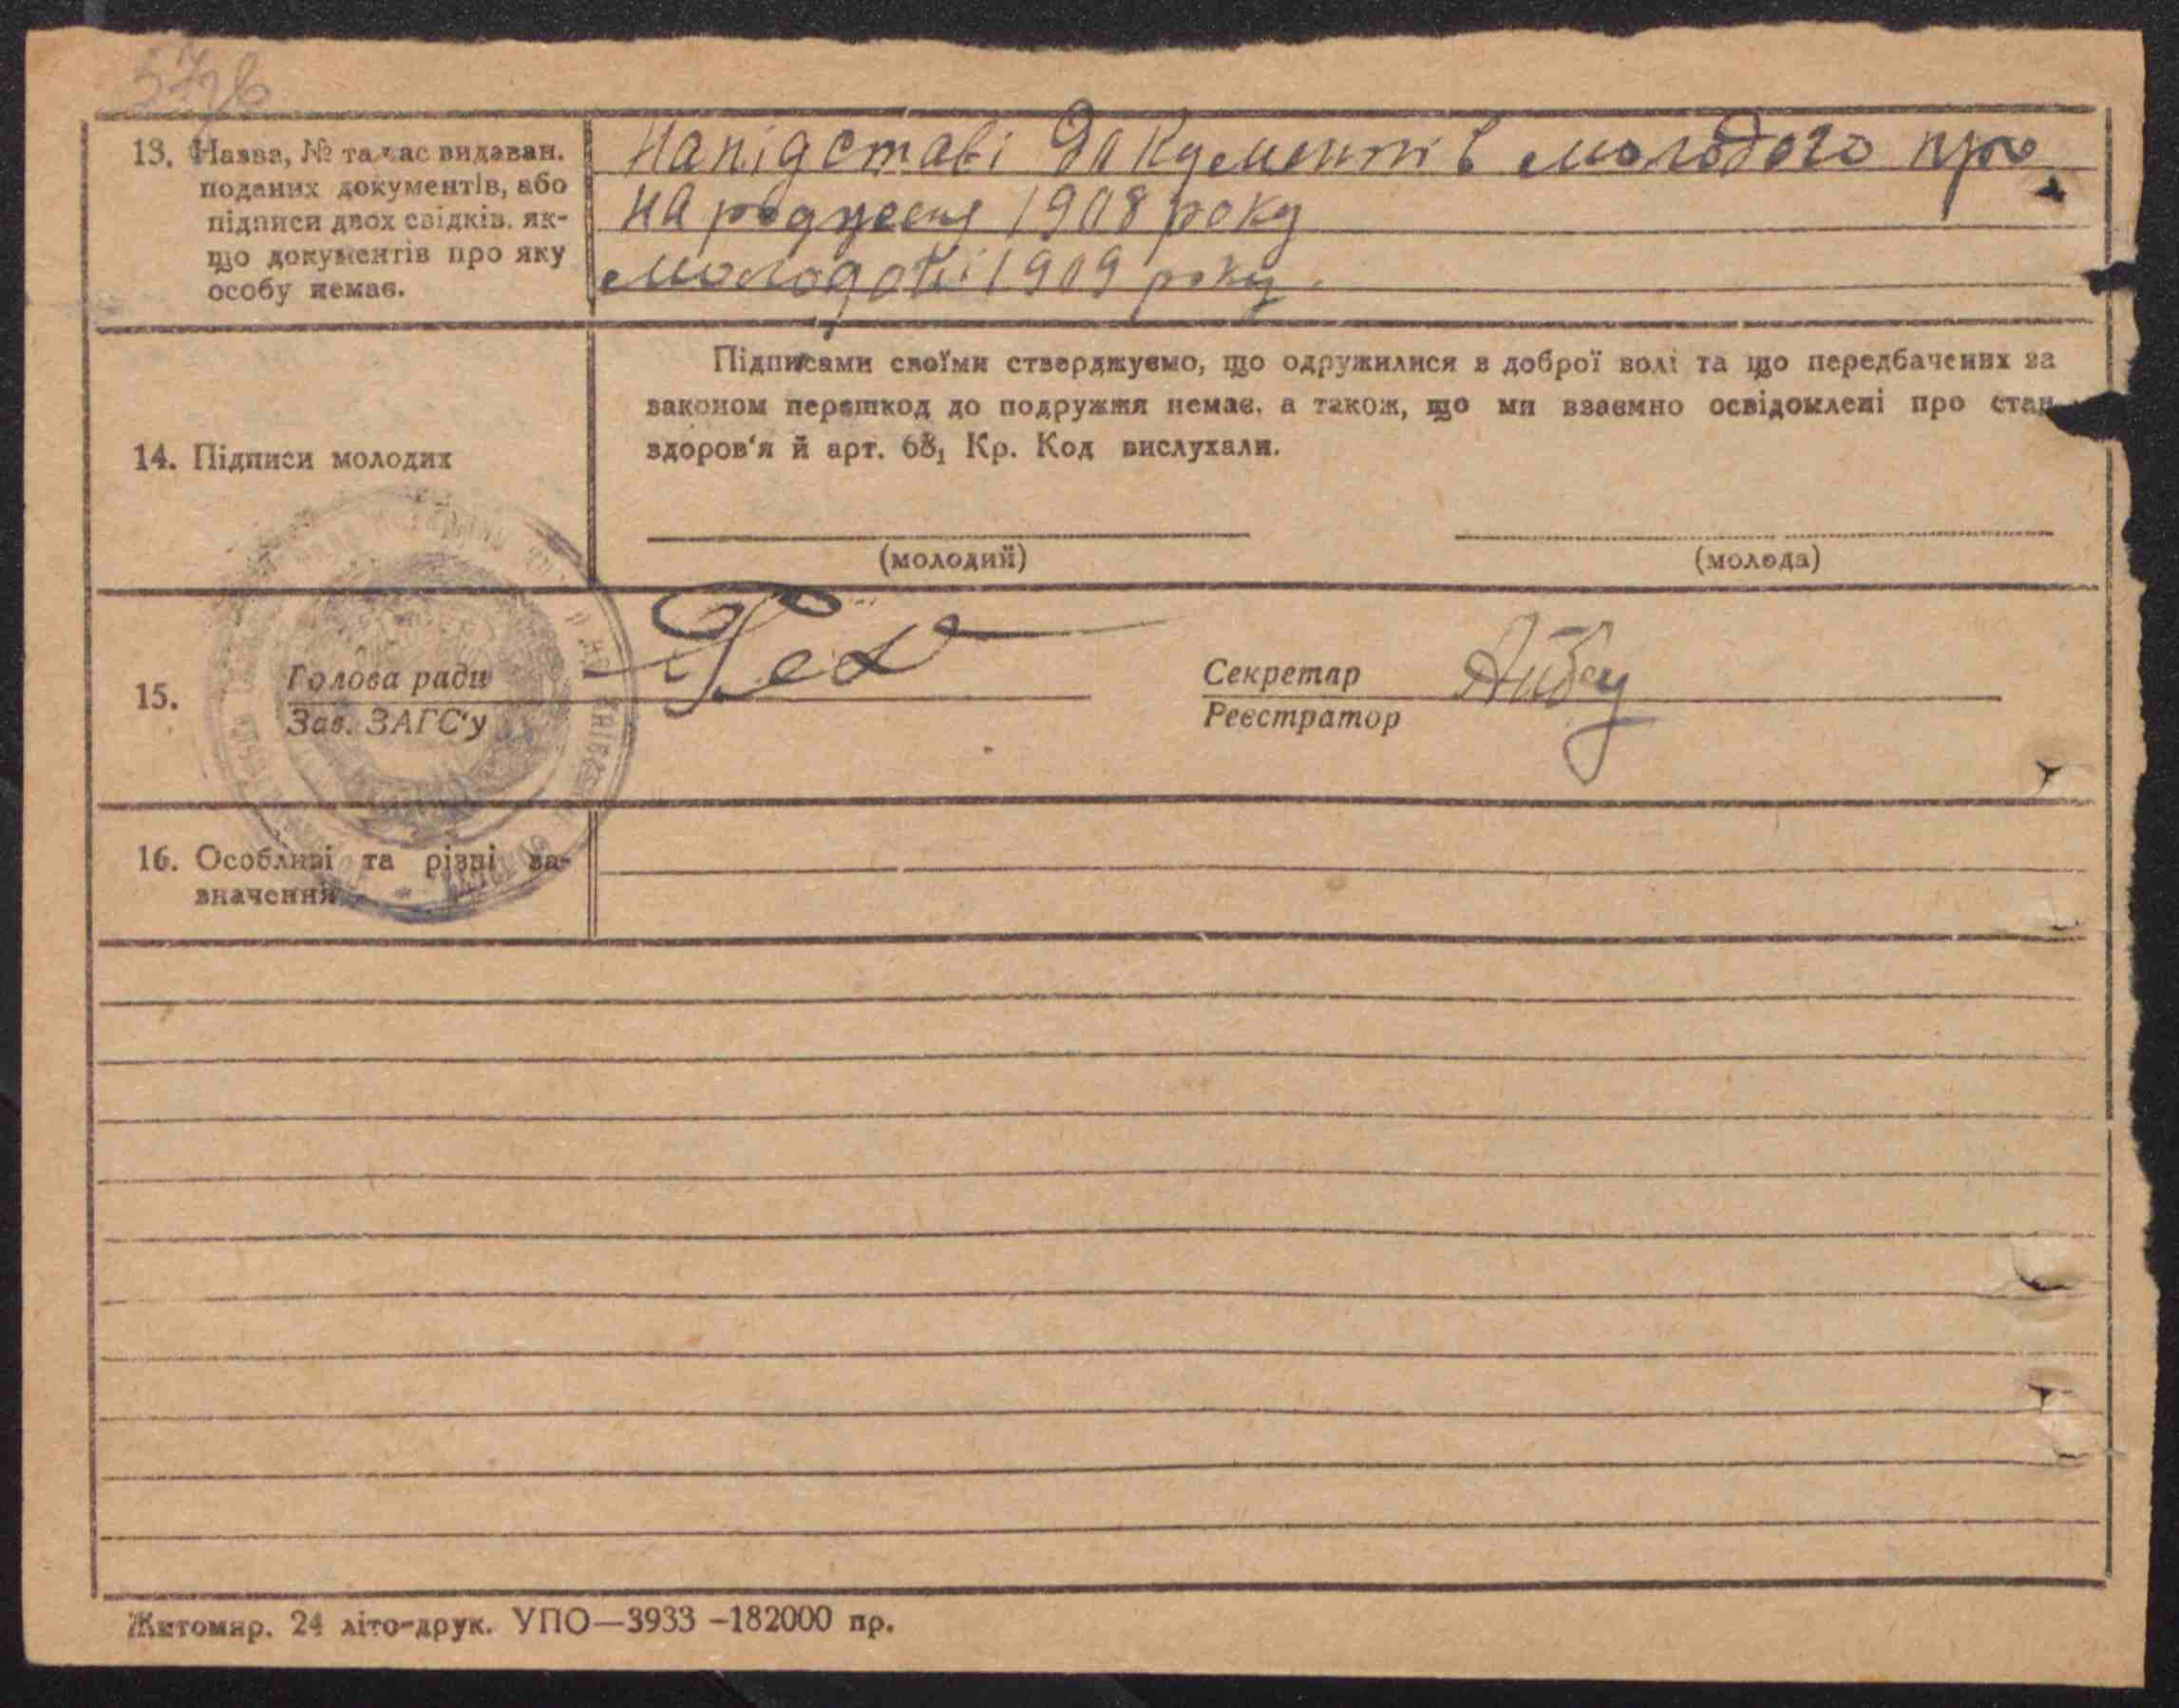 13. Назва, № та час видаван.
поданих документів, або
підписи двох свідків, як-
що документів про яку
особу немає.
На підставі дакументів молодого про
народження 1908 року
молодої 1909 року.
14. Підписи молодих
Підписами своїми стверджуємо, що одружилися в доброї волі та що передбачених за
законом перешкод до подружжя немає, а також, що ми взаємно освідомлені про стан
здоров'я й арт. 68₁ Кр. Код вислухали.
(молодий) (молода)
15. Голова ради Секретар
Зав. ЗАГС'у Реєстратор
16. Особливі та різні за-
значення
Житомир. 24 літо-друк. УПО—3933 –182000 пр.